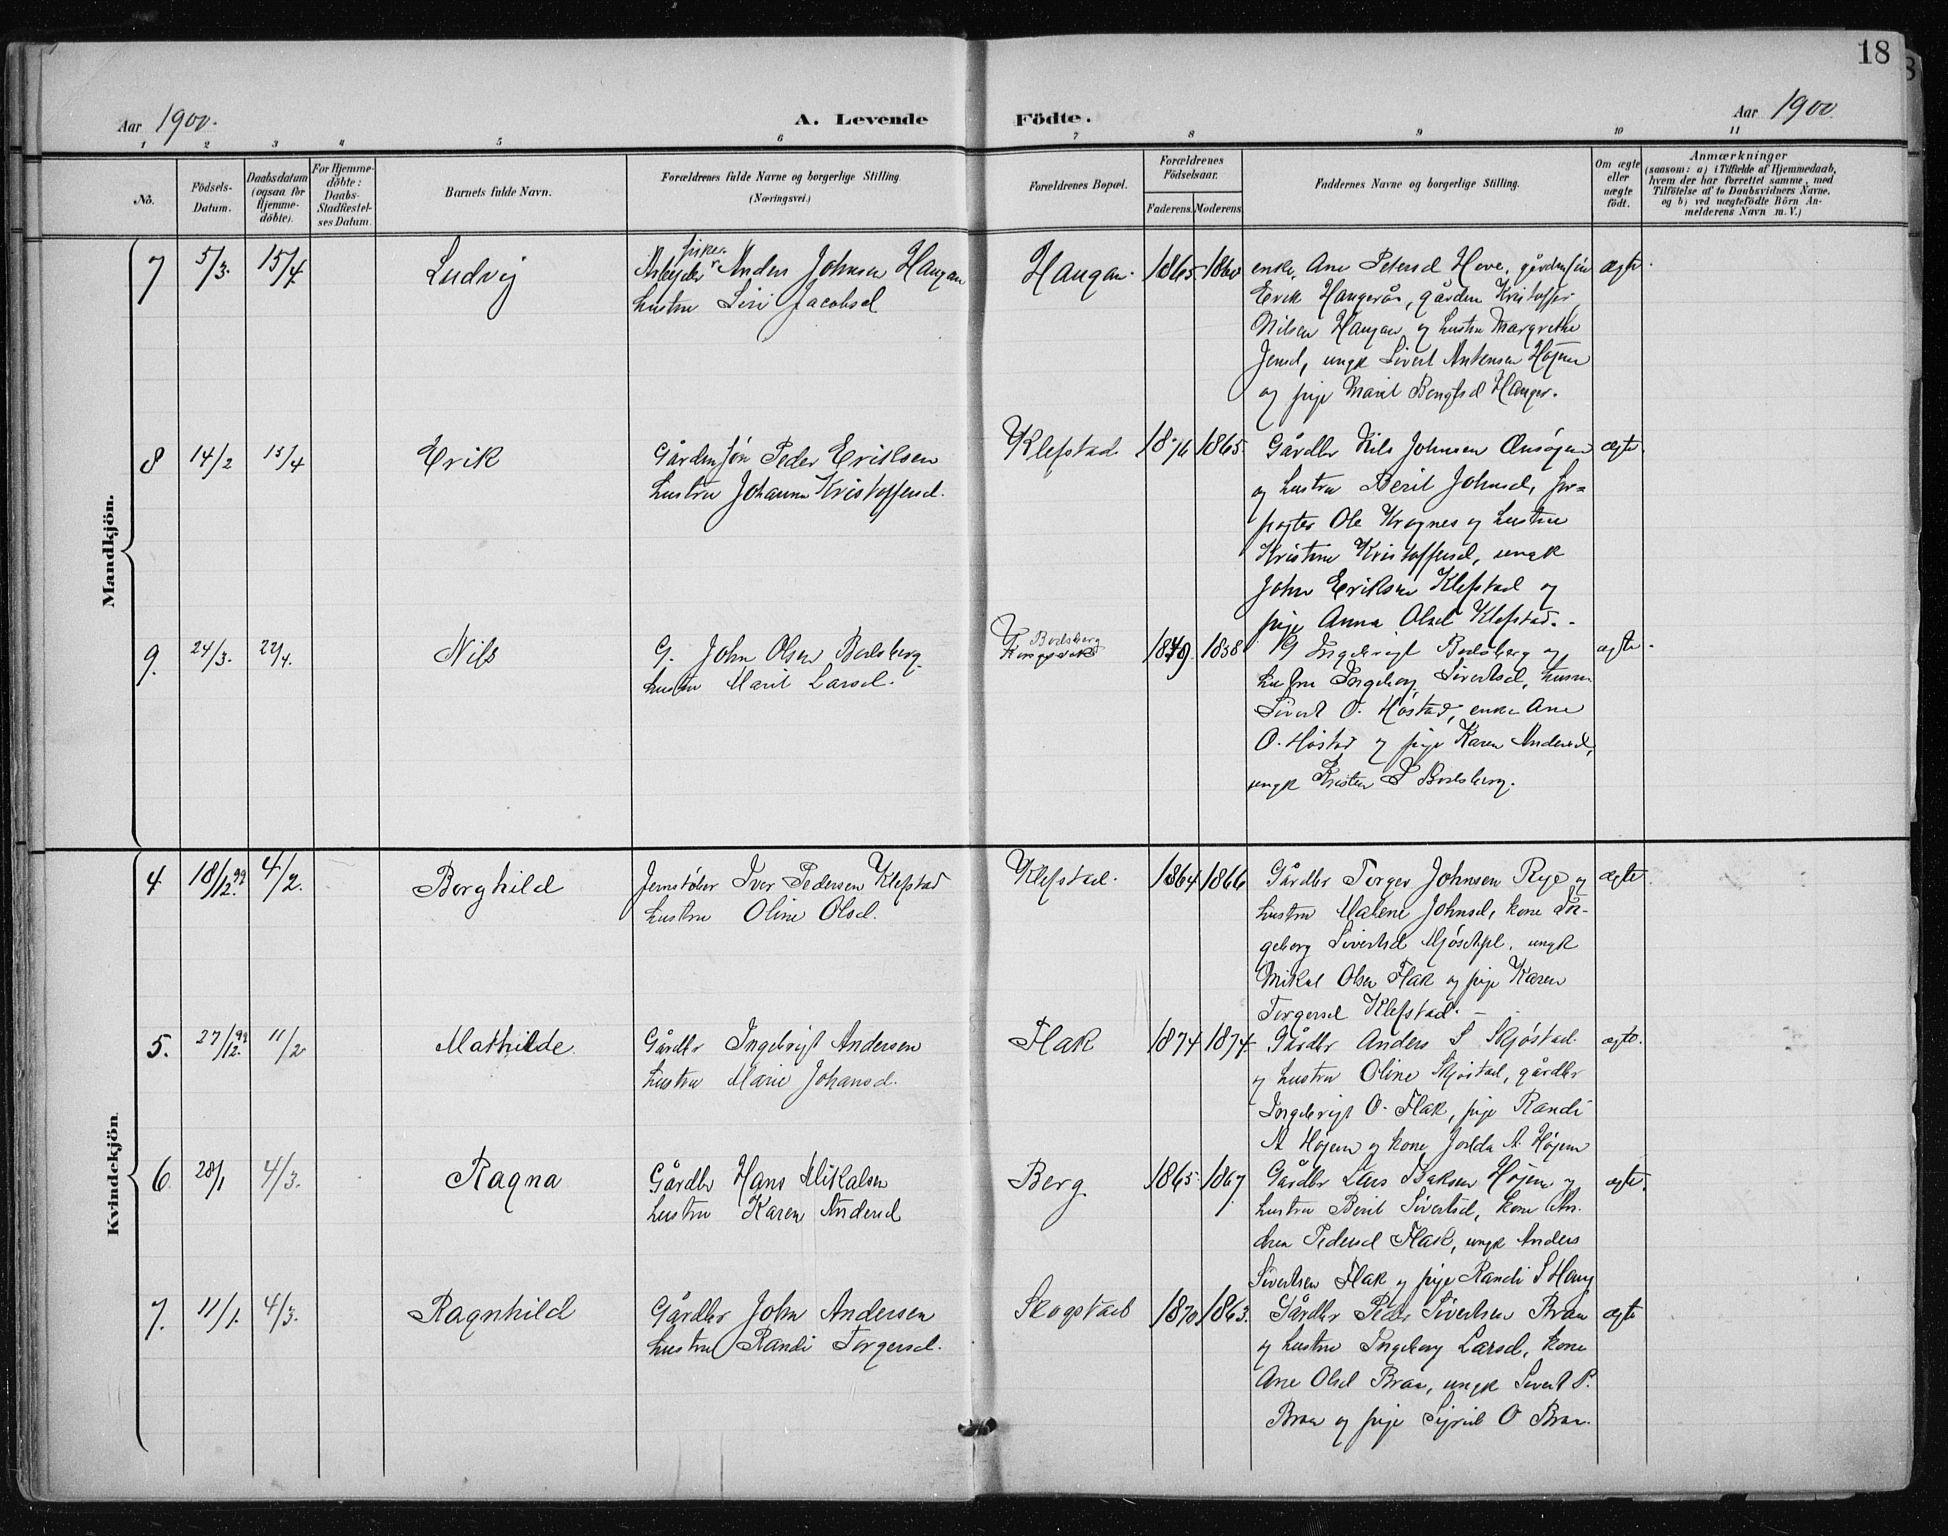 18
Aar 1900.
A. Levende Födte.
Aar 1900
1 2 3 4 5 6 7 8 9 10 11
No.
Födsels-
Datum.
Daabsdatum
(ogsaa for
Hjemme-
döbte).
For Hjemme-
döbte:
Daabs-
Stadfæstel-
ses Datum.
Barnets fulde Navn.
Forældrenes fulde Navne og borgerlige Stilling.
(Næringsvei.)
Forældrenes Bopæl.
Forældrenes
Födselsaar.
Faderens. Moderens.
Faddernes Navne og borgerlige Stilling.
Om ægte
eller
uægte
födt.
Anmærkninger
(saasom: a) i Tilfælde af Hjemmedaab,
hvem der har forrettet samme, med
Tilföielse af to Daabsvidners Navne,
og b) ved uægtefödte Börn An-
melderens Navn m. V.)
Mandkjön.
7 5/3. 15/4. Ludvig
fisker
Arbejder Anders Johnsen Haugan
hustru Siri Jacobsd
Haugan. 1865 1860
enke Ane Petersd Hove, gårdm søn
Erik Haugerås, gårdm Kristoffer
Nilsen Haugan og hustru Margrethe
Jensd, ungk Sivert Antonsen Højem
og pige Marit Bengtsd Hauger.
ægte
8 14/2 15/4 Erik
Gårdm søn Peder Eriksen
hustru Johanna Kristoffersd.
Klefstad 1876 1865
Gårdbr Nils Johnsen
og hustru Berit Johnsd, for-
pagter Ole Krognes og hustru
Kristine Kristoffersd, ungk
John Eriksen Klefstad og
pige Anna Olsd Klefstad.
ægte.
9. 24/3. 22/4. Nils
G. John Olsen Bodsberg
hustru Marit Larsd.
Bodsberg
1849. 1858
G Ingebrigt Bodsberg og
hustru Ingeborg Sivertsd, husm
Sivert O. Høstad, enke Ane
O. Høstad og pige Karen Andersd,
ungk Kristen S Bodsberg.
ægte
Kvindekjön
4 18/12.99 4/2. Borghild
Jernstøber Iver Pedersen Klefstad
hustru Oline Olsd.
Klefstad. 1864 1866
Gårdbr Torger Johnsen Rye og
hustru Malene Johnsd, kone In-
geborg Sivertsd, ungk
Mikal Olsen Flak og pige Karen
Torgersd Klefstad.
ægte
5. 27/12.99 11/2 Mathilde
Gårdbr Ingebrigt Andersen
hustru Marie Johansd.
Flak 1874 1874
Gårdbr Anders S Skjøstad
og hustru Oline Skjøstad, gårdbr
Ingebrigt O. Flak, pige Randi
A Højem og kone A. Højem
ægte.
6. 28/1 4/3. Ragna
Gårdbr Hans Mikalsen
hustru Karen Andersd
Berg 1865 1867
Gårdbr Lars Isaksen Højem og
hustru Berit Sivertsd, kone An-
drea Pedersd Flak, ungk Anders
Sivertsen Flak og pige Randi S Haug
ægte.
7. 11/1. 4/3. Ragnhild
Gårdbr John Andersen
hustru Randi Torgersd.
Skogstad 1870 1863.
Gårdbr Peder Sivertsen Braa
og hustru Ingeborg Larsd, kone
Ane Olsd Braa, ungk Sivert P.
Braa og pige Sigrid O Braa.
ægte